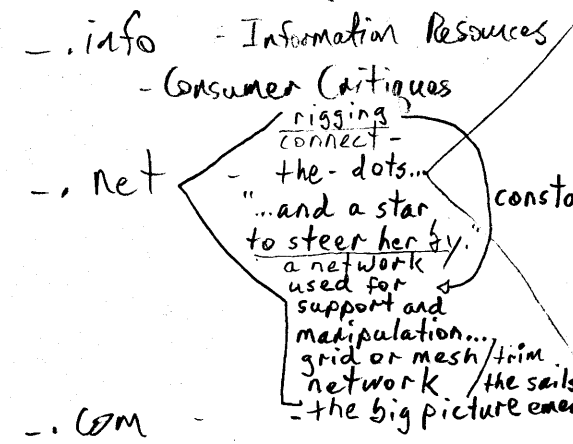 _.info - Information Resources
- Consumer Critiques
rigging
connect -
_.net - the - dots...
"...and a star
to steer her by."
a network
used for
support and
manipulation...
grid or mesh / trim
network / the sails
- the big picture
_.com -